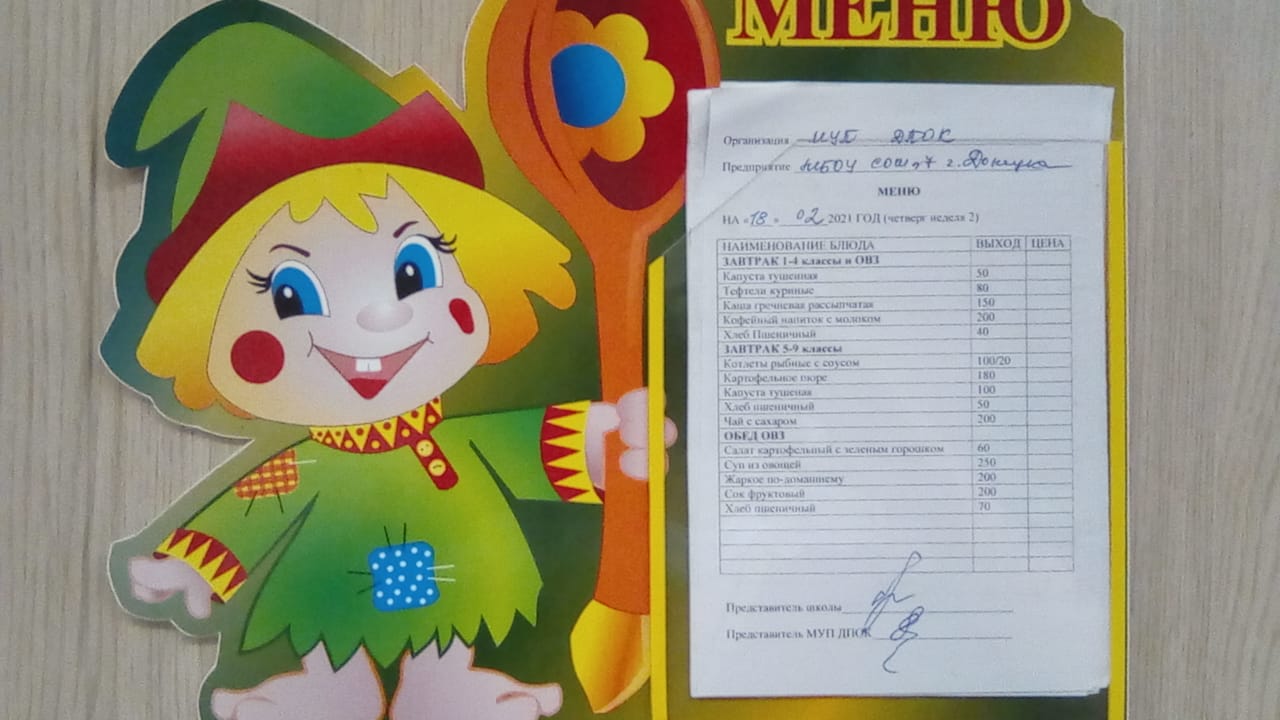 МЕНЮ
Организация МУП ДПОК
Предприятие МБОУ СОШ №7 г. Донецка
МЕНЮ
НА «18» 02 2021 ГОД (четверг неделя 2)
НАИМЕНОВАНИЕ БЛЮДА ВЫХОД ЦЕНА
ЗАВТРАК 1-4 классы и ОВЗ
Капуста тушенная 50
Тефтели куриные 80
Каша гречневая рассыпчатая 150
Кофейный напиток с молоком 200
Хлеб Пшеничный 40
ЗАВТРАК 5-9 классы
Котлеты рыбные с соусом 100/20
Картофельное пюре 180
Капуста тушеная 100
Хлеб пшеничный 50
Чай с сахаром 200
ОБЕД ОВЗ
Салат картофельный с зеленым горошком 60
Суп из овощей 250
Жаркое по-домашнему 200
Сок фруктовый 200
Хлеб пшеничный 70
Представитель школы
Представитель МУП ДПОК